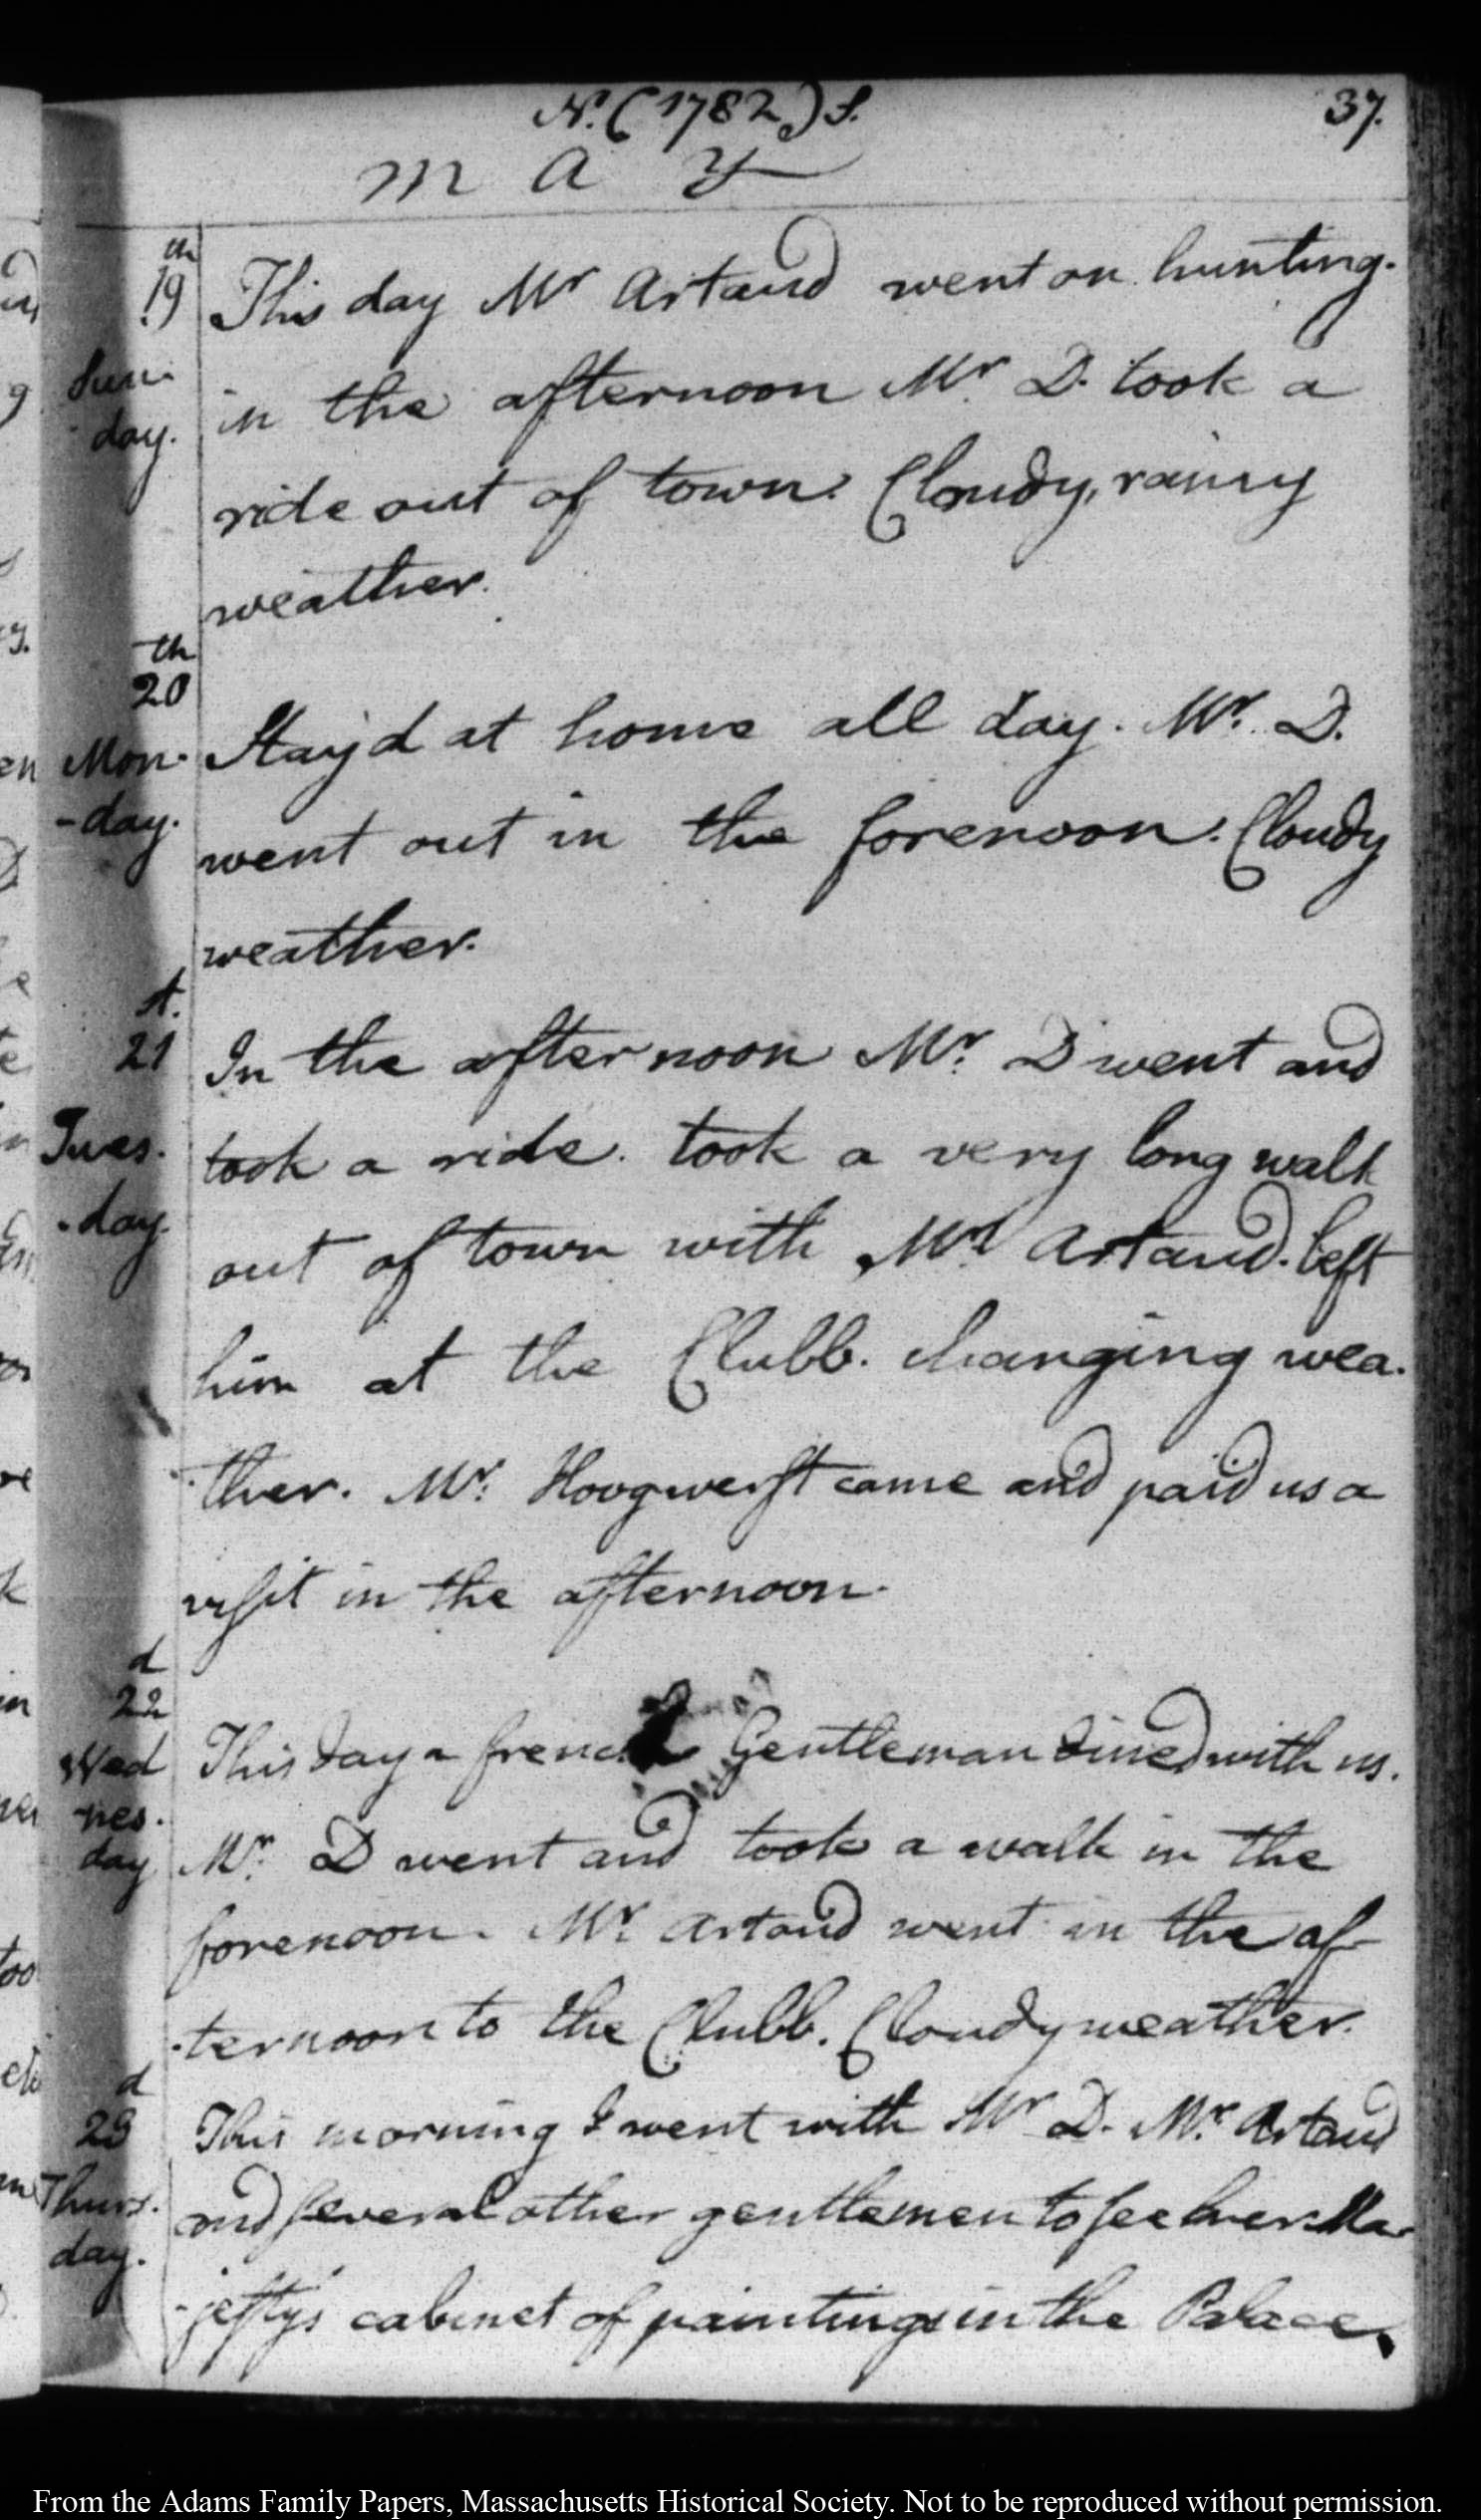 N. (1782.) S. 37.
M A Y
19th
Sun-
day.
This day Mr Artaud went on hunting.
in the afternoon Mr D. took a
ride out of town. Cloudy, rainy
weather.
20th
Mon-
-day.
Stay'd at home all day. Mr. D.
went out in the forenoon. Cloudy
weather.
21st.
Tues-
-day.
In the afternoon Mr. D went and
took a ride. took a very long walk
out of town with Mr Artaud. left
him at the Clubb. changing wea-
-ther. Mr. Hoogwerft came and paid us a
visit in the afternoon.
22d
Wed
-nes-
day
This day a french Gentleman dined with us.
Mr. D went and took a walk in the
forenoon. Mr. Artaud went in the af-
-ternoon to the Clubb. Cloudy weather.
23d
Thurs-
day.
This morning I went with Mr D. Mr. Artaud
and several other gentlemen to see her Ma-
-jesty's cabinet of paintings in the Palace,
From the Adams Family Papers, Massachusetts Historical Society. Not to be reproduced without permission.